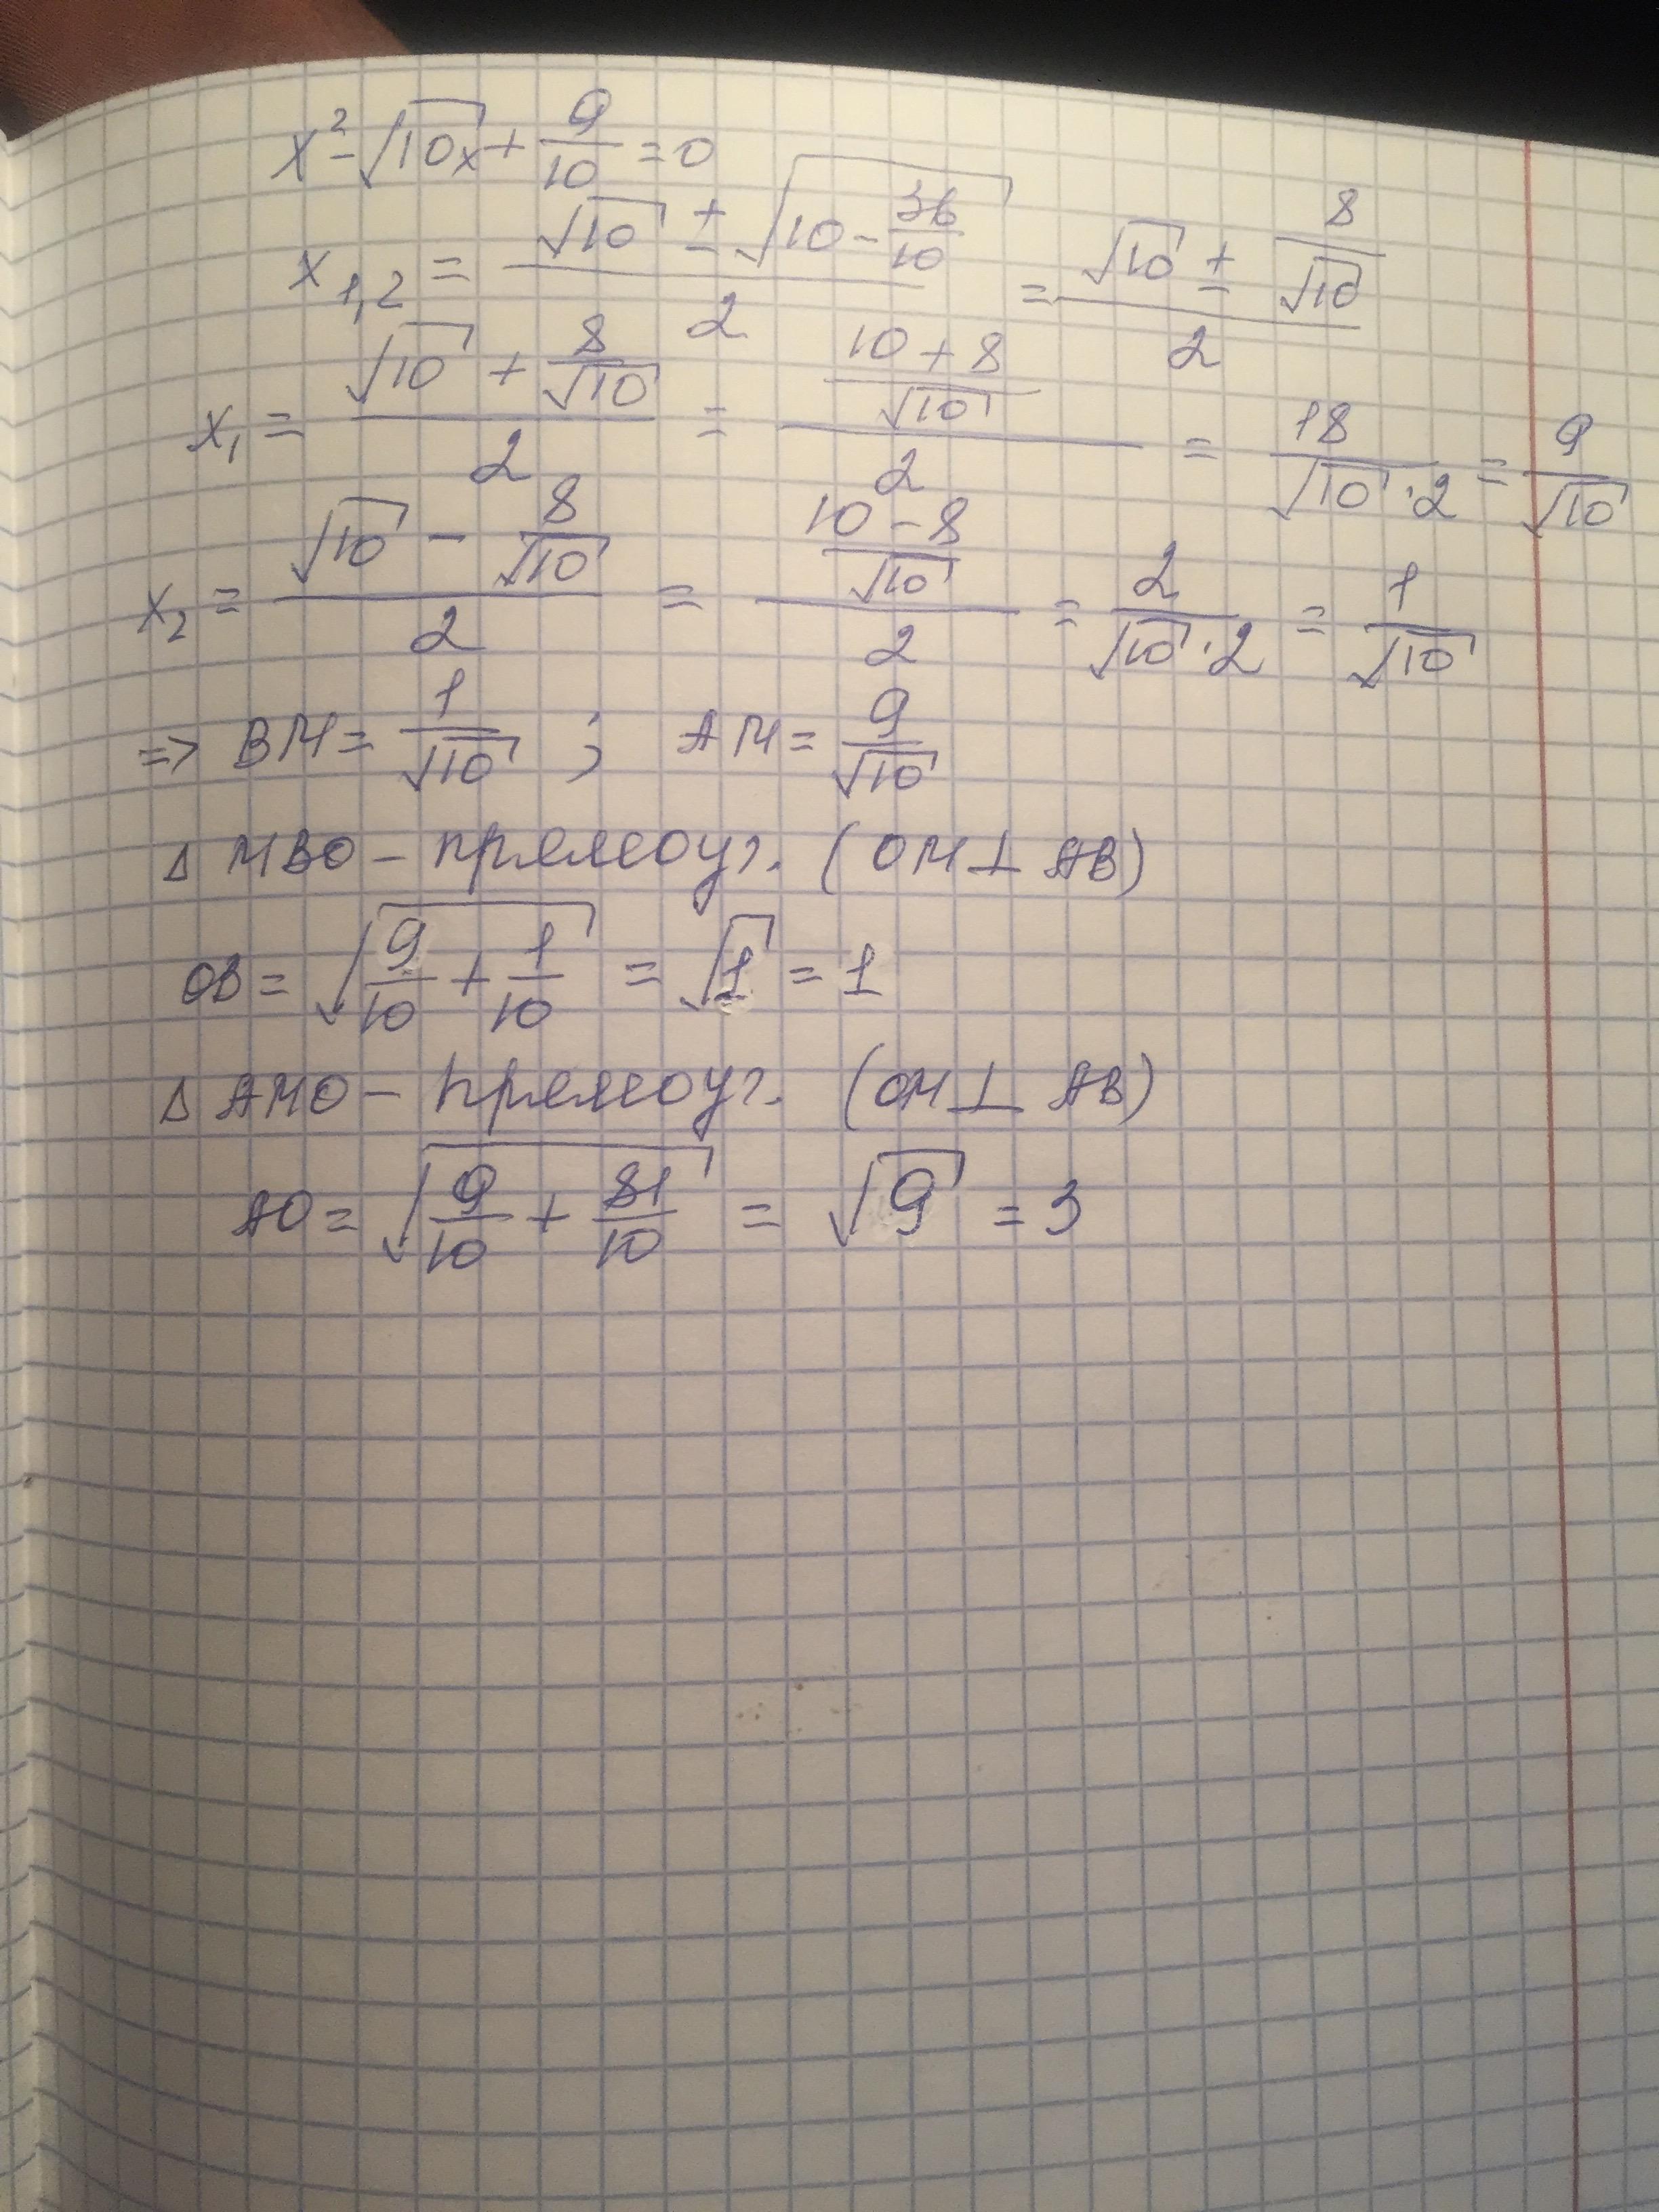 x² - √10x + 9/10 = 0
x₁,₂ = (√10 ± √(10 - 36/10))/2 = (√10 ± 8/√10)/2
x₁ = (√10 + 8/√10)/2 = ((10 + 8)/√10)/2 = 18/(√10 · 2) = 9/√10
x₂ = (√10 - 8/√10)/2 = ((10 - 8)/√10)/2 = 2/(√10 · 2) = 1/√10
=> BM = 1/√10 ; AM = 9/√10
Δ MBO - прямоуг. (OM ⊥ AB)
OB = √(9/10 + 1/10) = √1 = 1
Δ AMO - прямоуг. (OM ⊥ AB)
AO = √(9/10 + 81/10) = √9 = 3